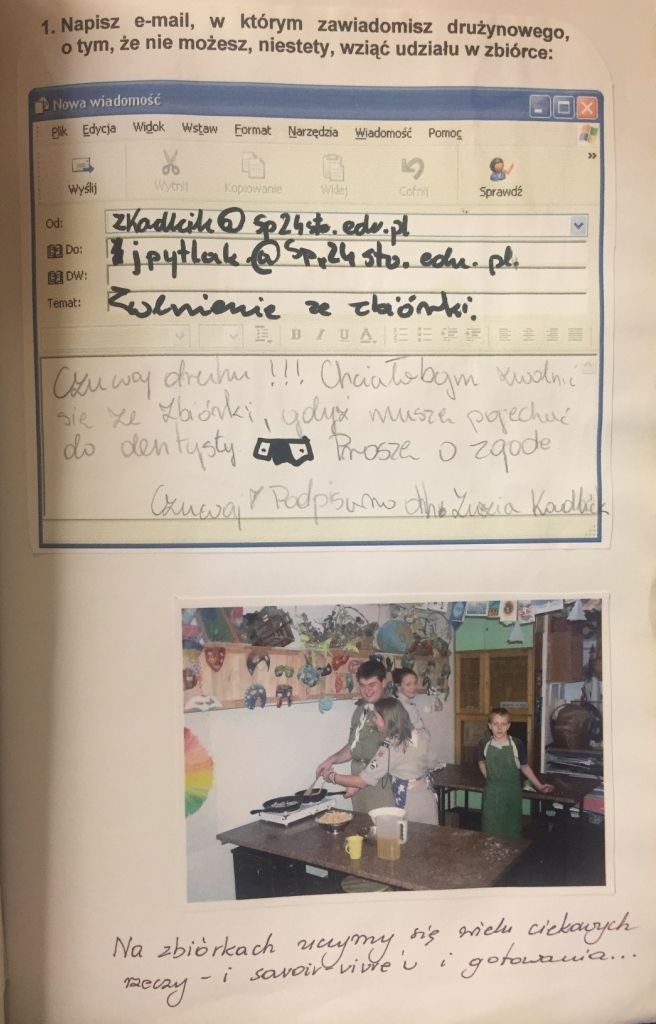 1. Napisz e-mail, w którym zawiadomisz drużynowego,
o tym, że nie możesz, niestety, wziąć udziału w zbiórce:
Nowa wiadomość
Plik Edycja Widok Wstaw Format Narzędzia Wiadomość Pomoc
»
Wyślij Wytnij Kopiowanie Wklej Cofnij Sprawdź
Od: zkadlcik@sp24sto.edu.pl
Do: jpytlak.@Sp.24sto.edu.pl.
DW:
Temat: Zwolnienie ze zbiórki.
B I U A
Czuwaj druhu !!! Chciałabym zwolnić
się ze zbiórki, gdyż muszę pojechać
do dentysty. Proszę o zgodę
Czuwaj Podpisano dh. Zuzia
Na zbiórkach uczymy się wielu ciekawych
rzeczy - i savoir-vivre'u i gotowania...